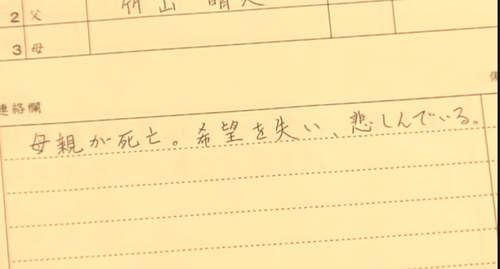 2 父 竹山 晴
3 母
連絡欄
母親が死亡。希望を失い、悲しんでいる。